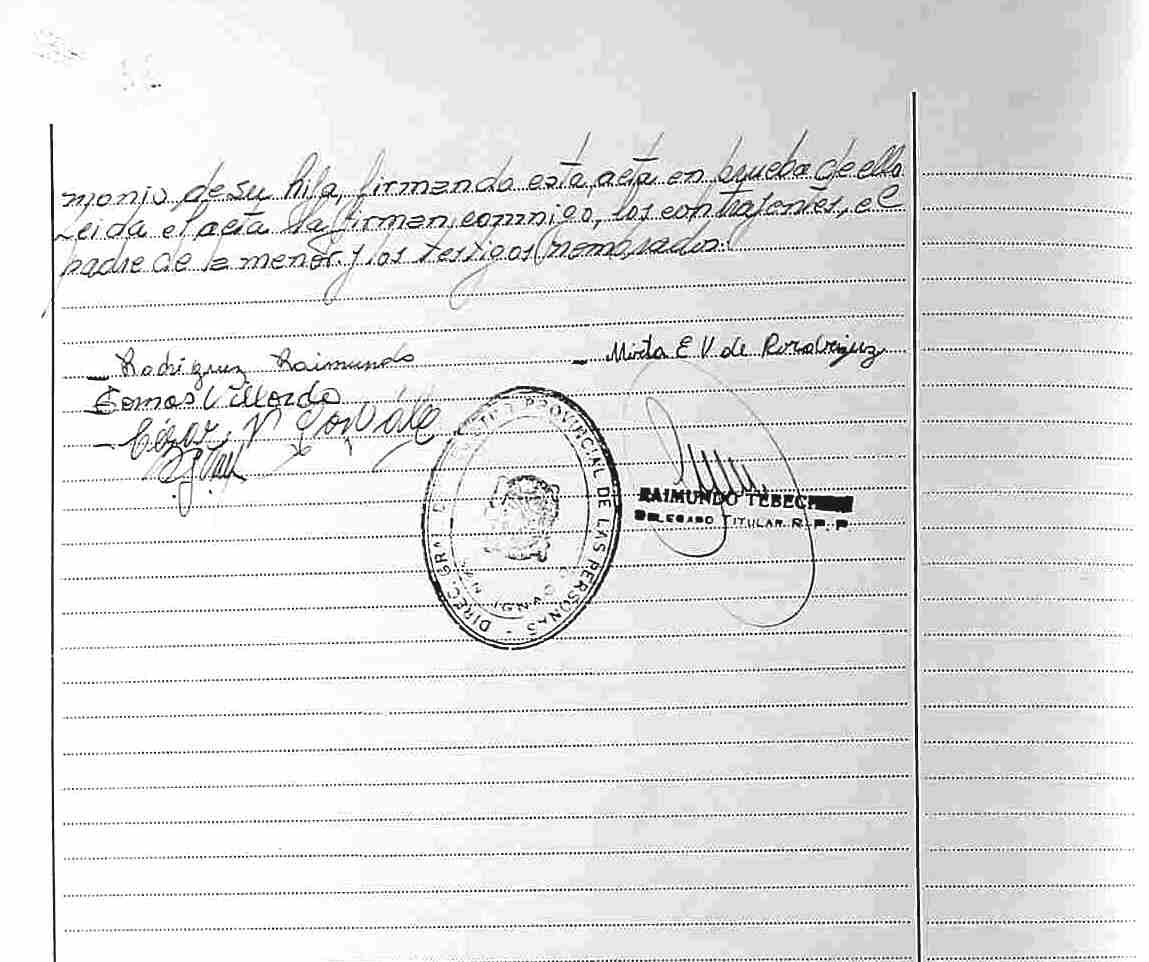 monio de su hija, firmando esta acta en prueba de ello
Leida el acta la firman conmigo, los contrayentes, el
padre de la menor y los testigos nombrados.
- Rodriguez Raimundo
- Mirta E V de Rorodriguez
Tomas Villordo
- César N González
DIREC. GRAL. DEL REGISTRO PROVINCIAL DE LAS PERSONAS -
SAN IGNACIO
RAIMUNDO TEBECH
DELEGADO TITULAR R. P. P